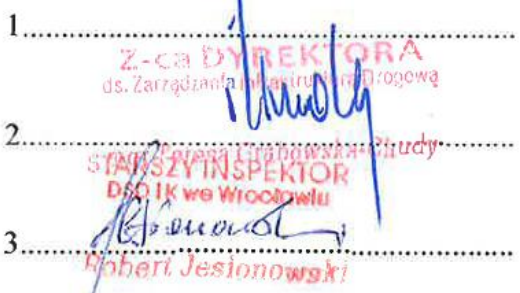 1..............................
Z-ca DYREKTORA
ds. Zarządzania Infrastrukturą Drogową
2..............................
Teresa Grabowska-Chudy
STARSZY INSPEKTOR
DSDiK we Wrocławiu
3..............................
Robert Jesionowski